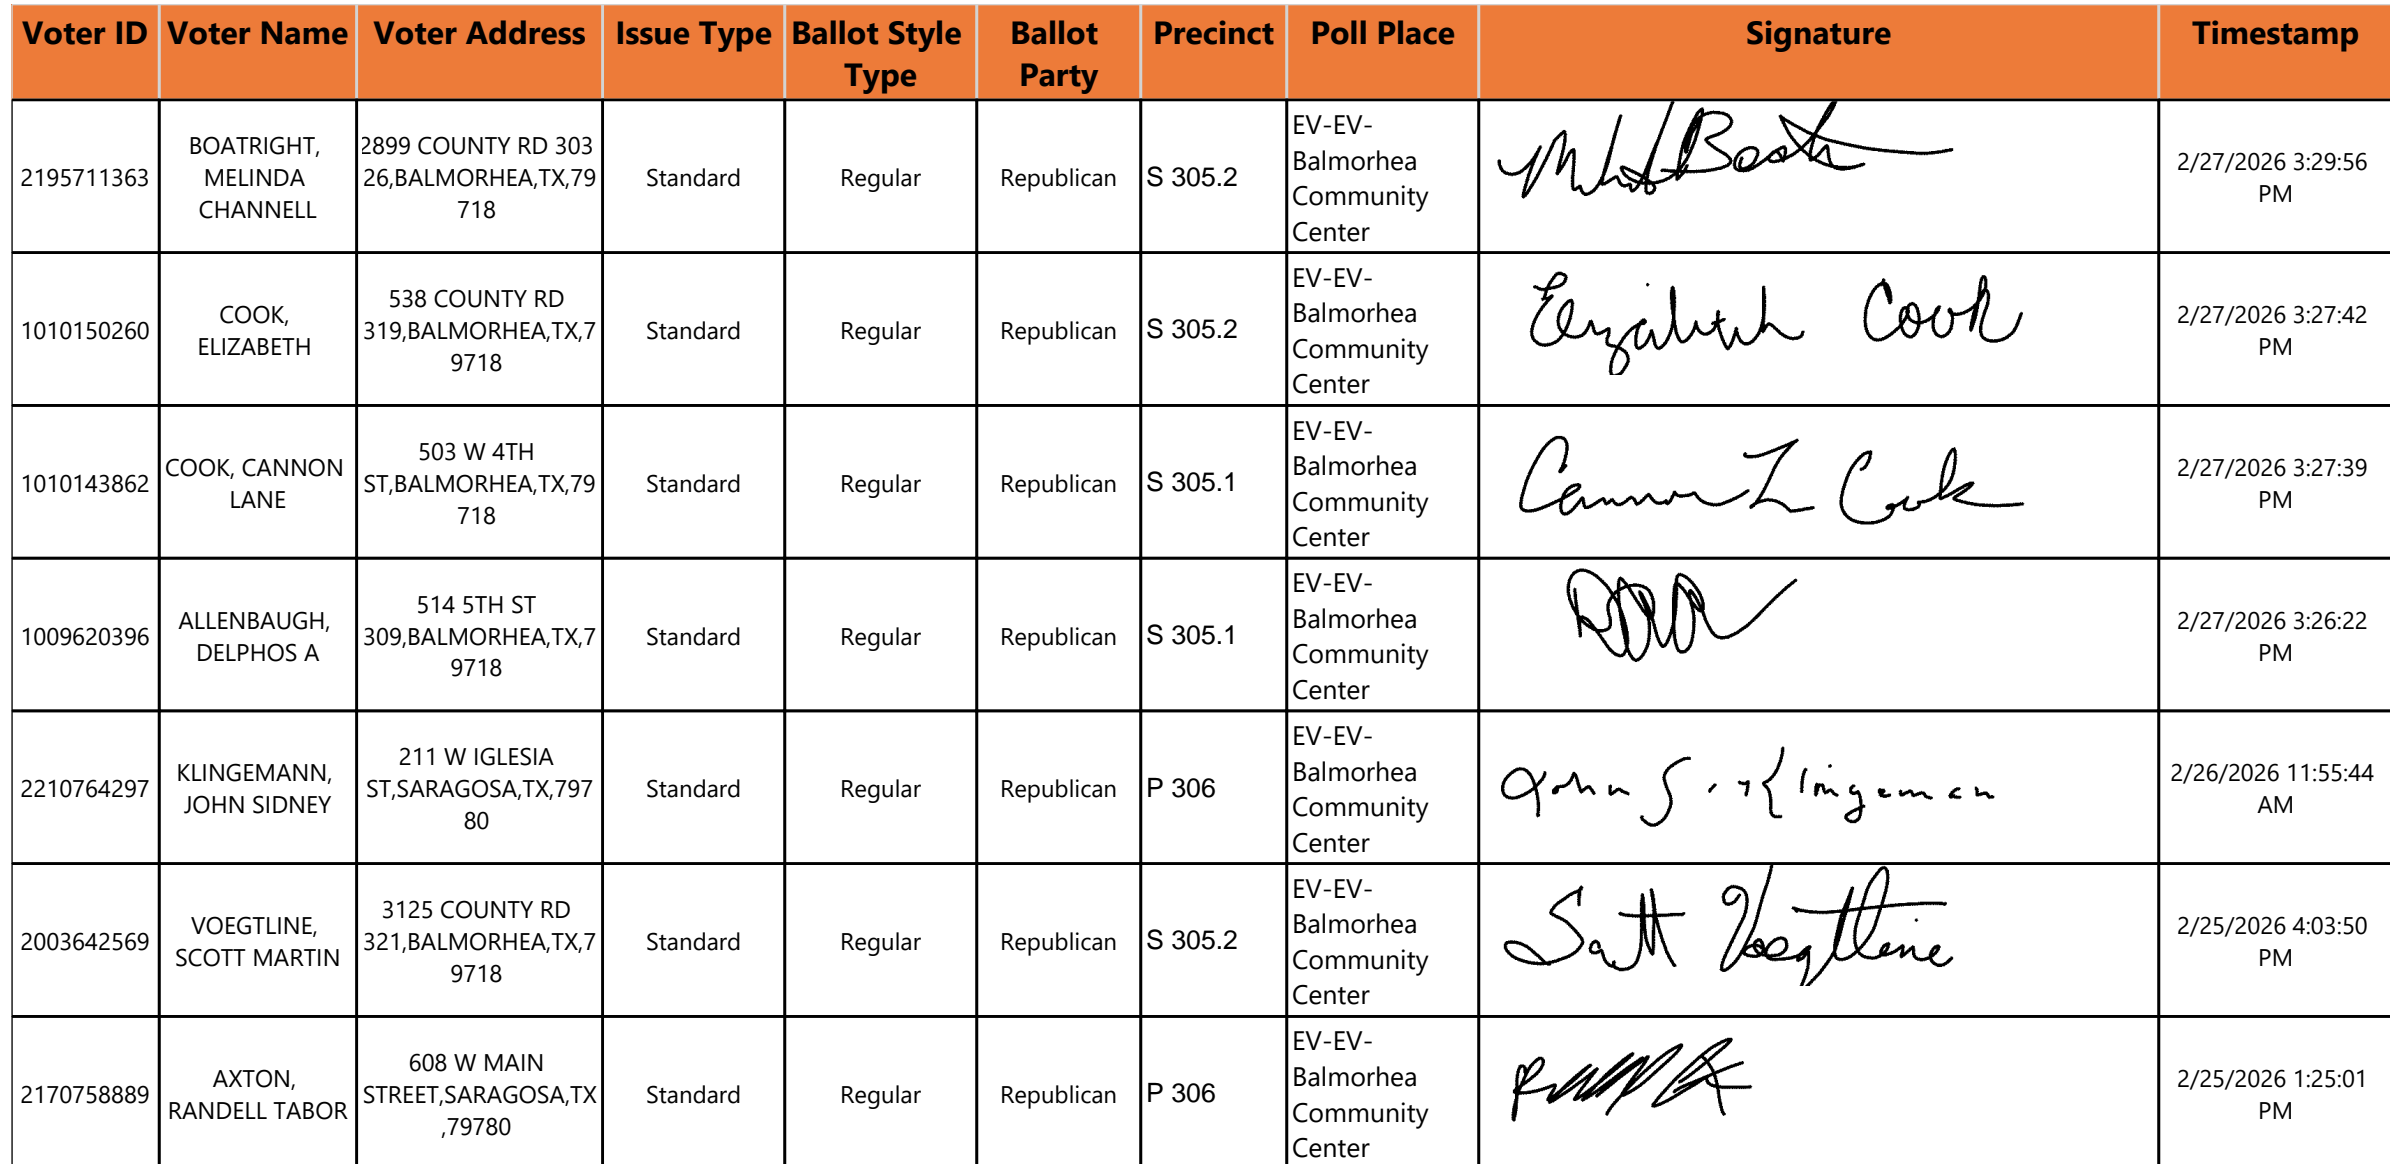 Voter ID Voter Name Voter Address Issue Type Ballot Style Type Ballot Party Precinct Poll Place Signature Timestamp
2195711363 BOATRIGHT, MELINDA CHANNELL 2899 COUNTY RD 303 26,BALMORHEA,TX,79718 Standard Regular Republican S 305.2 EV-EV-Balmorhea Community Center 2/27/2026 3:29:56 PM
1010150260 COOK, ELIZABETH 538 COUNTY RD 319,BALMORHEA,TX,79718 Standard Regular Republican S 305.2 EV-EV-Balmorhea Community Center Elizabeth Cook 2/27/2026 3:27:42 PM
1010143862 COOK, CANNON LANE 503 W 4TH ST,BALMORHEA,TX,79718 Standard Regular Republican S 305.1 EV-EV-Balmorhea Community Center Cannon L Cook 2/27/2026 3:27:39 PM
1009620396 ALLENBAUGH, DELPHOS A 514 5TH ST 309,BALMORHEA,TX,79718 Standard Regular Republican S 305.1 EV-EV-Balmorhea Community Center 2/27/2026 3:26:22 PM
2210764297 KLINGEMANN, JOHN SIDNEY 211 W IGLESIA ST,SARAGOSA,TX,79780 Standard Regular Republican P 306 EV-EV-Balmorhea Community Center John S. Klingeman 2/26/2026 11:55:44 AM
2003642569 VOEGTLINE, SCOTT MARTIN 3125 COUNTY RD 321,BALMORHEA,TX,79718 Standard Regular Republican S 305.2 EV-EV-Balmorhea Community Center Scott Voegtline 2/25/2026 4:03:50 PM
2170758889 AXTON, RANDELL TABOR 608 W MAIN STREET,SARAGOSA,TX,79780 Standard Regular Republican P 306 EV-EV-Balmorhea Community Center 2/25/2026 1:25:01 PM